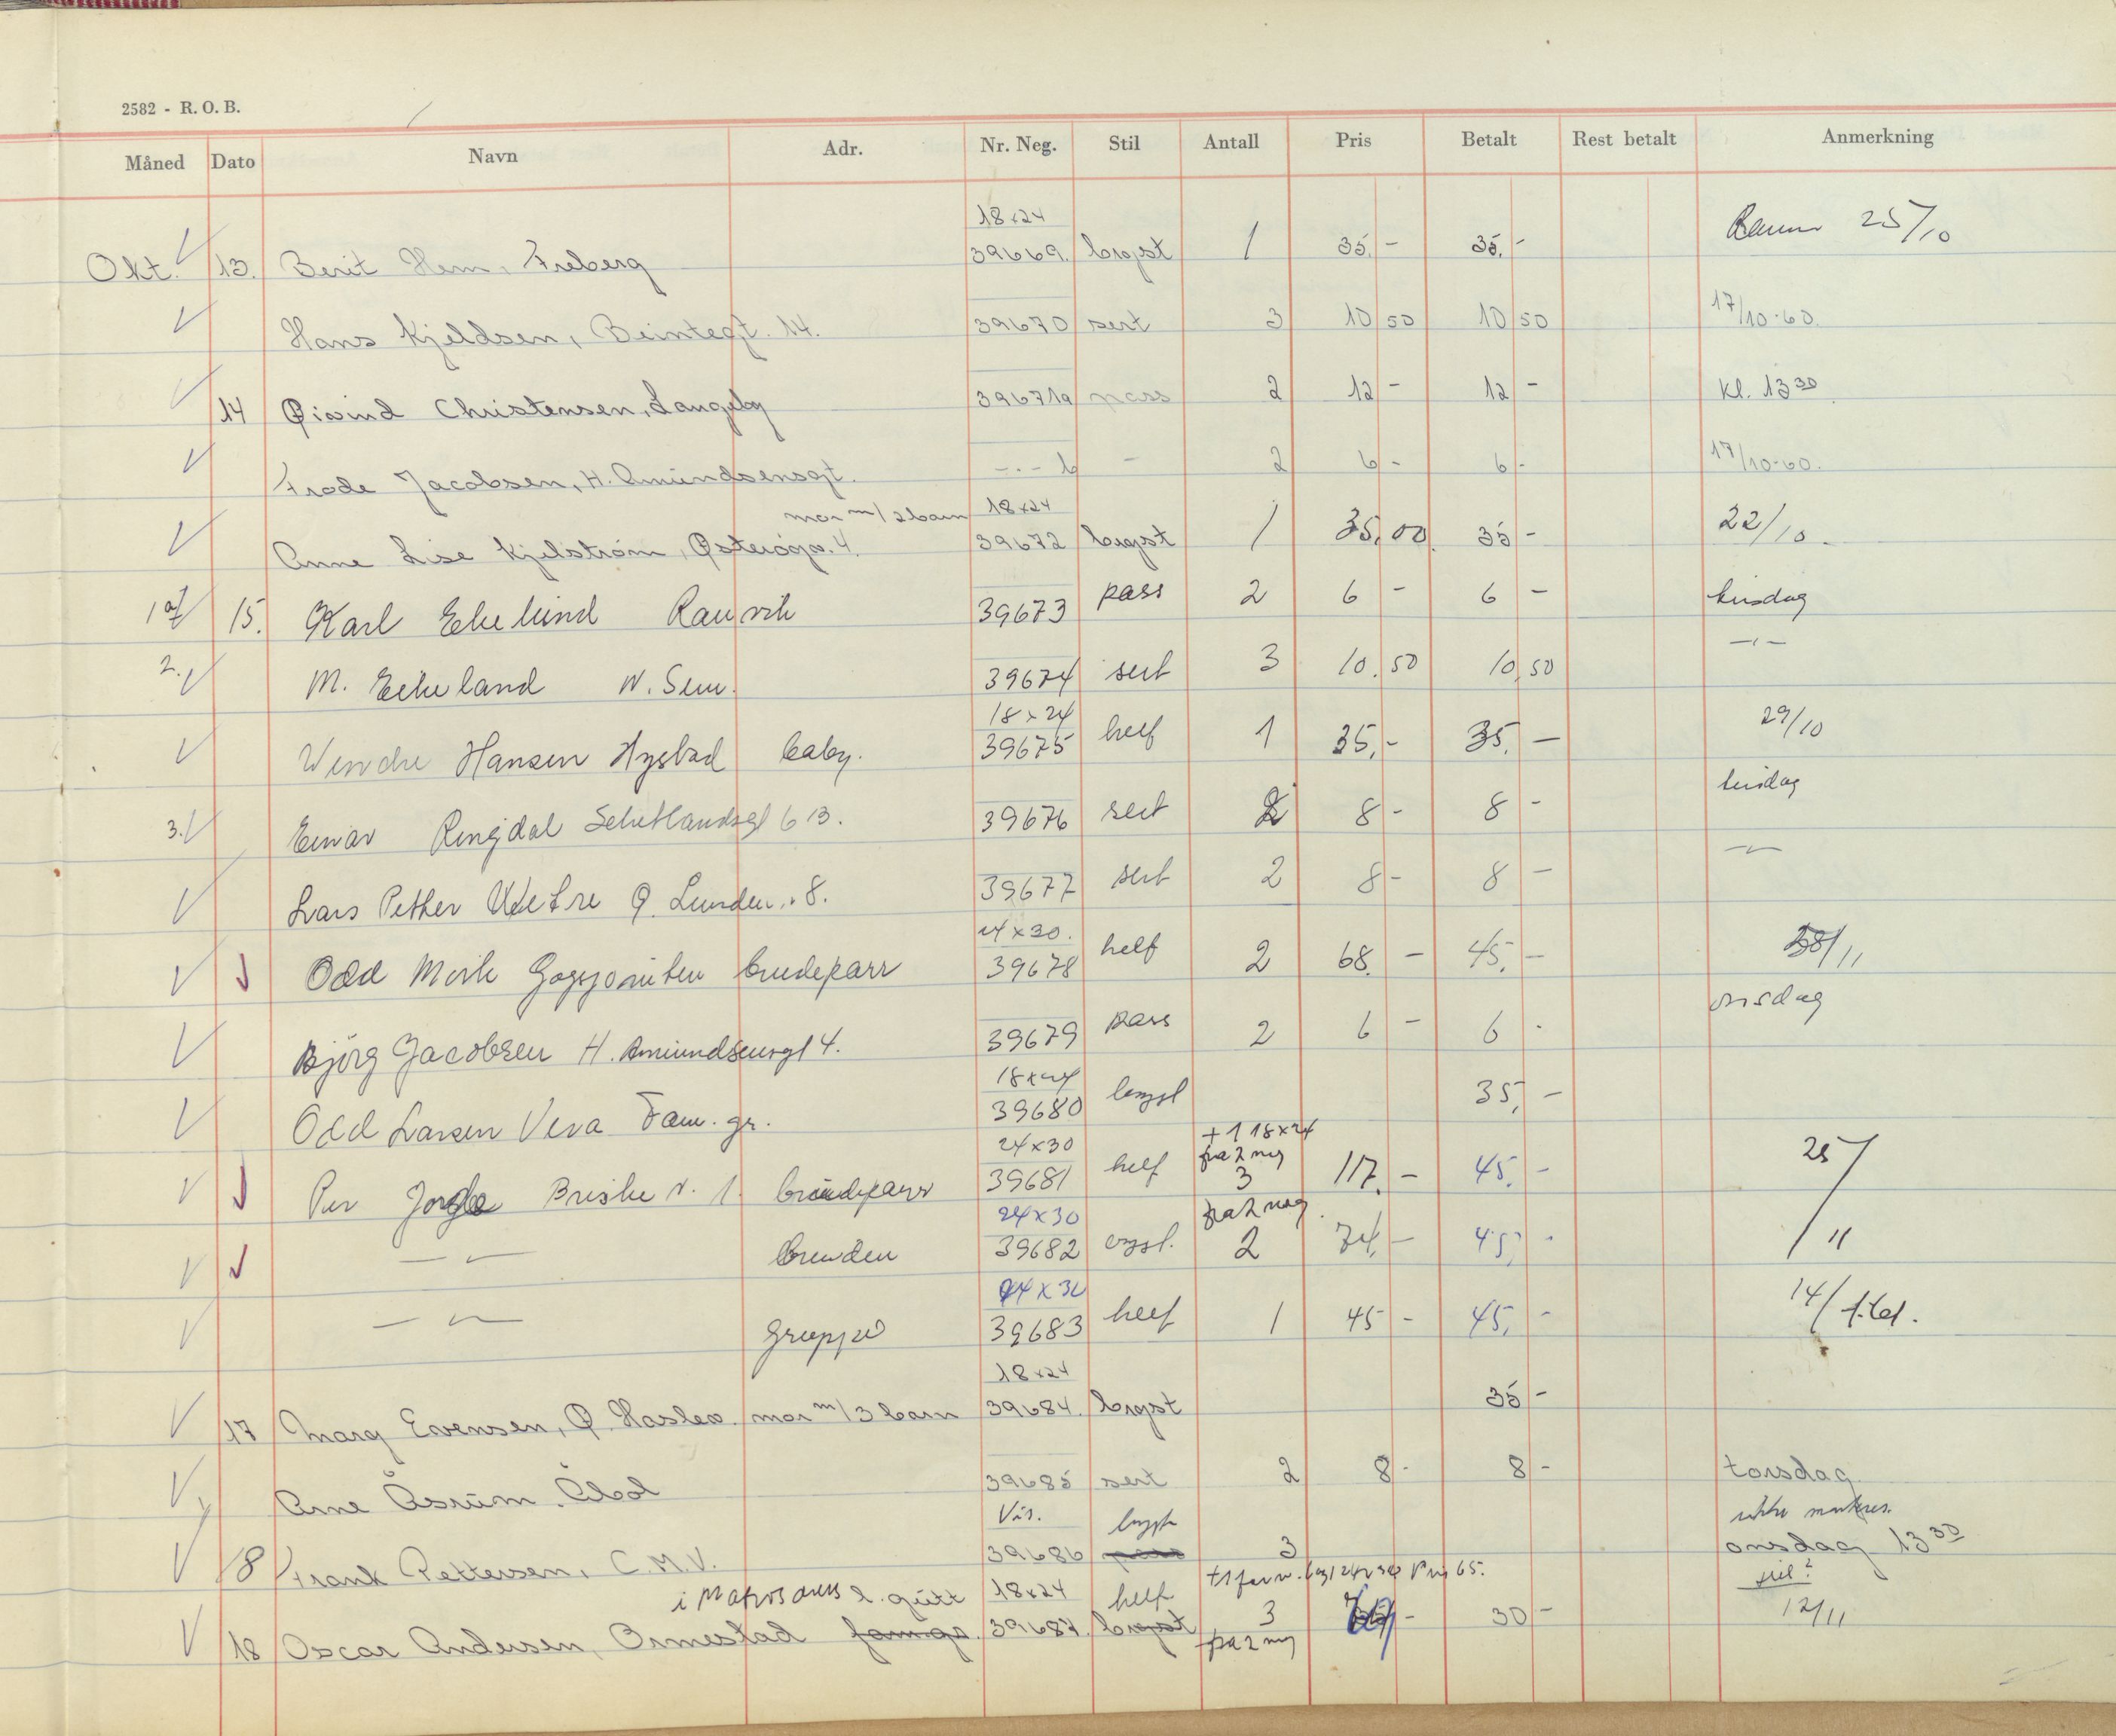 2582 - R. O. B.
Måned Dato Navn Adr. Nr. Neg. Stil Antall Pris Betalt Rest betalt Anmerkning
18x24
Okt. 13. Berit Hem, Freberg 39669. bryst 1 35,- 35,- 25/10
Hans Kjeldsen, Beintegt. 14. 39670 sert 3 10 50 10 50 17/10-60.
14 Øivind Christensen, Langeby 39671a pass 2 12 - 12 - Kl. 13 30
Frode Jacobsen, H. Amundsensgt. -.- b - 2 6 - 6 - 17/10-60.
mor m/ 2 barn 18x24
Anne Lise Kjelström, 4. 39672 bryst 1 35,00 35 - 22/10-
15. Karl Ekelund Rauvik 39673 pass 2 6 - 6 - tirsdag
2. M. Eikeland N. Sem. 39674 sert 3 10.50 10,50 -"-
18x24
Wenche Hansen Nystad baby. 39675 helf 1 35,- 35,- 29/10
3. Einar Ringdal 6 B. 39676 sert 2 8 - 8 - tirsdag
Lars Petter Wetre Ø. Lunden. 8. 39677 sert 2 8 - 8 - -"-
24x30.
Odd Mork brudeparr 39678 helf 2 68. - 45,- /11
Bjørg Jacobsen H. Amundsensgt 4. 39679 pass 2 6 - 6 - onsdag
18x24
Odd Larsen Vera Fam. gr. 39680 brystl 35,-
24x30 +1 18x24
fra 2 neg
Per Briske v. 1. brudeparr 39681 helf 3 117,- 45,- 25/11
24x30 fra 2 neg.
-"- bruden 39682 brystl. 2 74,- 45,-
24x30
-"- gruppe 39683 helf 1 45 - 45,- 14/ 1.tel.
18x24
17 Marg Evensen, Ø. Haslev. mor m/3 barn 39684. bryst 35 -
Arne Åsrum. Åbol 39685 sert 2 8 - 8 - torsdag
Vis. bryst
18 Frank Pettersen, C.M.V. 39686 pass 3 onsdag 13 30
i Matros dress l. gutt 18x24 helf
18 Oscar Andersen, Ormestad fam.gr. 39687. bryst 3 30 - 12/11
fra 2 neg